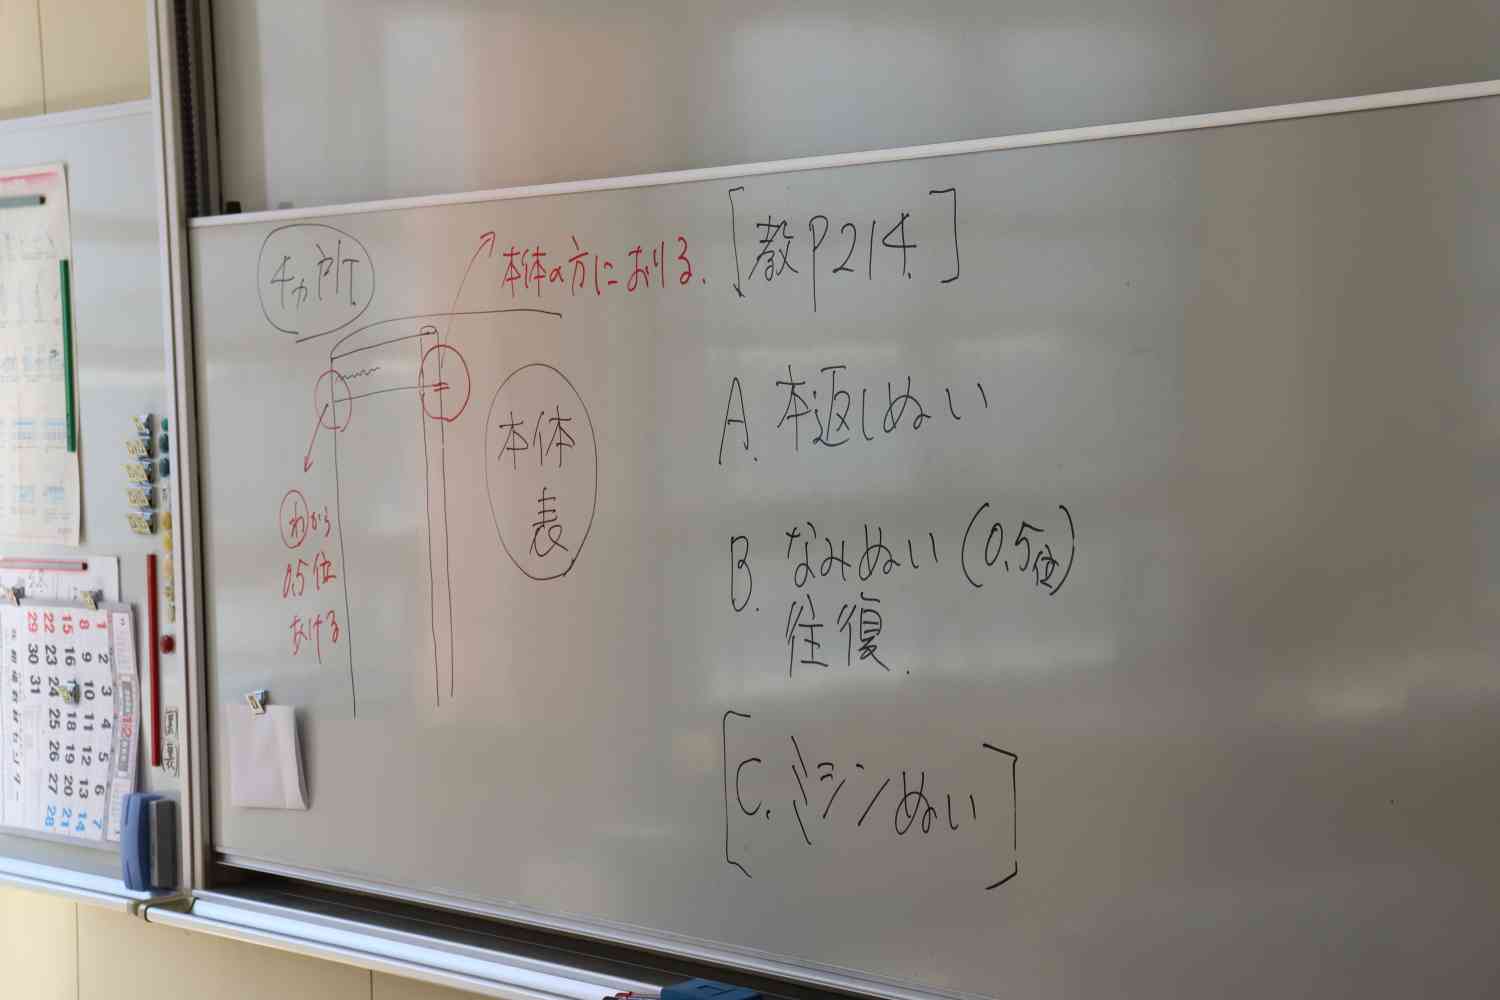 4ヵ所
本体の方におりる.
[教P214.]
本体
表
わから
0.5位
あける
A. 本返しぬい
B. なみぬい(0.5位)
往復.
[C. ミシンぬい]
12
1 2 3 4 5 6 7
8 9 10 11 12 13 14
15 16 17 18 19 20 21
22 23 24 25 26 27 28
29 30 31